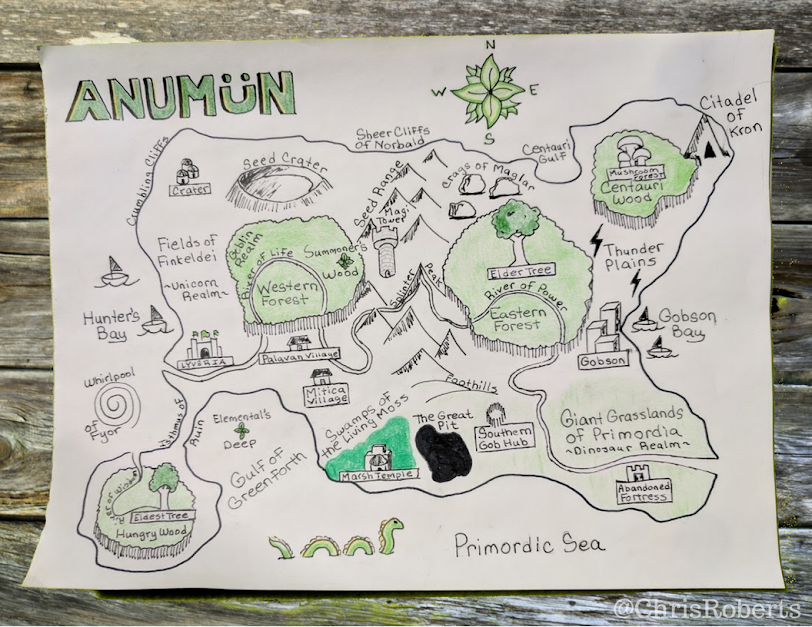 ANUMÜN
N
W E
S
Citadel
of
Kron
Crumbling Cliffs
Sheer Cliffs
of Norbald
Centauri
Gulf
Crater
Seed Crater
Seed Range
Crags of Maglar
Mushroom
Forest
Centauri
Wood
Magi
Tower
Fields of
Finkeldei
~Unicorn
Realm~
Goblin
Realm
River of Life
Summoner's
Wood
Western
Forest
Splinter
Peak
Elder Tree
River of Power
Eastern
Forest
Thunder
Plains
Hunter's
Bay
Gobson
Bay
Gobson
Lyveria
Palavan Village
Mitica
Village
Foothills
Whirlpool
of
Fyor
Isthmus of
Ruin
Elemental's
Deep
Gulf of
Greenforth
Swamps of
the Living Moss
Marsh Temple
The Great
Pit
Southern
Gob Hub
Giant Grasslands
of Primordia
~Dinosaur Realm~
Abandoned
Fortress
Eldest Tree
Hungry Wood
Primordic Sea
@ChrisRoberts